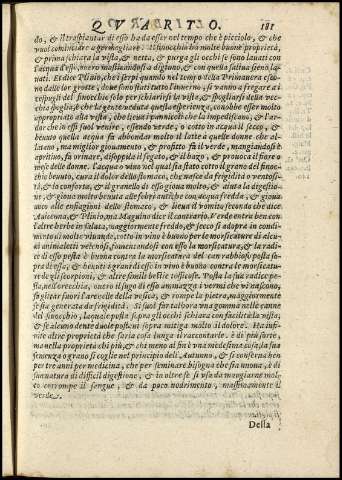 QVARTTO. 181
do, & il traspiantar di esso ha da esser nel tempo che è picciolo, & che
vuol cominciar a germogliare. Il finocchio ha molte buone proprietà,
e prima schiara la vista, & netta, & purga gli occhi se sono lauati con
l'acqua d'essi, overo masticandosi a digiuno, & con quella saliua sieno la-
uati. Et dice Plinio, che i serpi quando nel tempo della Primauera esco-
no dalle lor grotte, doue sono stati tutto l'inuerno, si vanno a fregare ai
cespugli del finocchio solo per schiarirsi la vista, & spogliarsi della vec-
chia spoglia, & che la gente veduta quella esperienza, conobbe esser molto
appropriato alla vista, che lieua i pannicoli che la impediscono, & l'ar-
dor che in essi suol venire, essendo verde, o cotto in acqua il secco, &
beuuto quella acqua fa abbondar molto il latte a quelle donne che al-
lattano, ma miglior giouamento, & profitto fa il verde, mangiandosi è
aperitiuo, fa orinare, disoppila il fegato, & il bazo, & prouoca il fiore o
mese delle donne. l'acqua o vino nel qual sia stato cotto il grano del finoc-
chio beuuto, cura il dolor dello stomaco, che nasce da frigidità o ventosi-
tà, & lo conforta, & il granello di esso gioua molto, & aiuta la digestio-
ne, & gioua molto beuuto alle febri antiche con acqua fredda, & gioua
ancora alle enfiagioni dello stomaco, & lieua il vomito secondo che dice
Auicenna, & Plinio, ma Maguino dice il contrario. Verde entra ben con
l'altre herbe in salata, maggiormente freddo, & secco si adopra in condi-
mento di molte viuande, cotto in vino è buono per le morsicature di alcu-
ni animaletti velenosi, fomentandosi con esso la morsicatura, & la radi-
ce di esso pesta è buona contra la morsicatura del can rabbioso posta so-
pra di essa, & beuuti i grani di esso in vino è buono contra le morsicatu-
re de gli scorpioni, & altre simili bestie toscose. Posta la sua radice pe-
sta, nell'orecchia, ouero il sugo di esso ammazza i vermi che vi nascono,
fa gittar fuori l'arenelle della vesica, & rompe la pietra, maggiormente
se sia generata di frigidità. Si suol far talhora vna gomma nelle canne
del finocchio, laquale posta sopra gli occhi schiara con facilità la vista,
& se alcuno dente duole postoui sopra mitiga molto il dolore. Ha infi-
nite altre proprietà che saria cosa lunga il raccontarle. è di più sorte,
ma nella proprietà chi più, & chi meno al fin è vna medesima cosa, la sua
semenza o grano si coglie nel principio dell'Autunno, & si conserua ben
per tre anni per medicina, che per seminare bisogna che sia nuoua, è di
sua natura di difficil digestione, & in oltre se si vsa da mangiarne mol-
to corrompe il sangue, & da poco nodrimento, massimamente il
verde.
Della